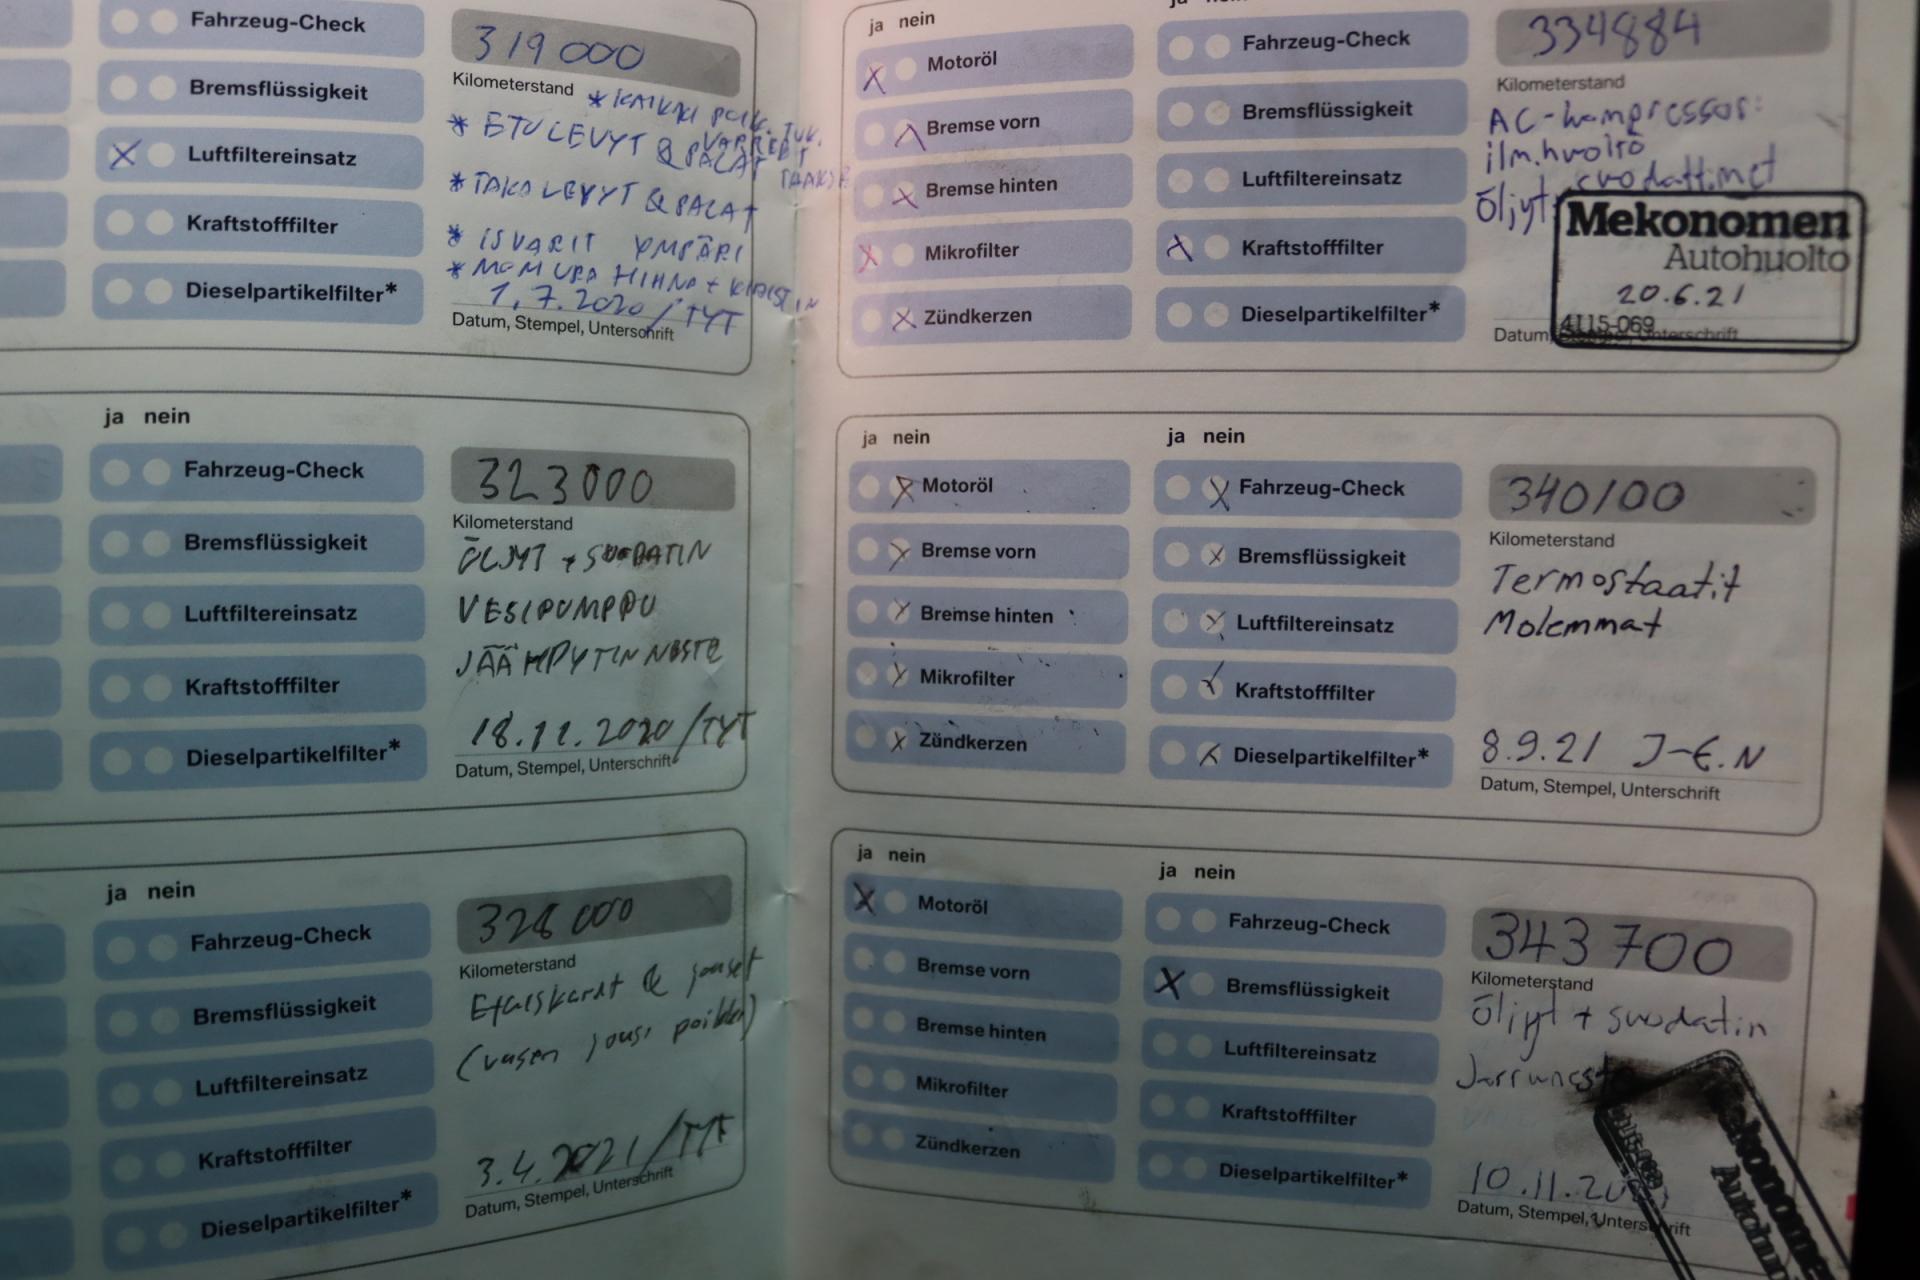 Fahrzeug-Check
Bremsflüssigkeit
Luftfiltereinsatz
Kraftstofffilter
Dieselpartikelfilter*
319 000
Kilometerstand
* KAIKKI
* ETULEVYT & PALAT
* TAKALEVYT & PALAT
* ISVARIT YMPÄRI
* MONIURA HIHNA + KIRISTIN
1.7.2020 / TYT
Datum, Stempel, Unterschrift
ja nein
Fahrzeug-Check
Bremsflüssigkeit
Luftfiltereinsatz
Kraftstofffilter
Dieselpartikelfilter*
323000
Kilometerstand
ÖLJYT + SUODATIN
VESIPUMPPU
JÄÄHDYTINNESTE
18.11.2020 / TYT
Datum, Stempel, Unterschrift
ja nein
Fahrzeug-Check
Bremsflüssigkeit
Luftfiltereinsatz
Kraftstofffilter
Dieselpartikelfilter*
328 000
Kilometerstand
Etuiskarit & jouset
(vasen jousi poikki)
3.4.2021 / TYT
Datum, Stempel, Unterschrift
ja nein
Motoröl
Bremse vorn
Bremse hinten
Mikrofilter
Zündkerzen
Fahrzeug-Check
Bremsflüssigkeit
Luftfiltereinsatz
Kraftstofffilter
Dieselpartikelfilter*
334884
Kilometerstand
AC-kompressor:
ilm.huolto
Öljyt, suodattimet
Mekonomen
Autohuolto
20.6.21
4115-069
Datum, Unterschrift
ja nein
Motoröl
Bremse vorn
Bremse hinten
Mikrofilter
Zündkerzen
ja nein
Fahrzeug-Check
Bremsflüssigkeit
Luftfiltereinsatz
Kraftstofffilter
Dieselpartikelfilter*
340100
Kilometerstand
Termostaatit
Molemmat
8.9.21 J-E.N
Datum, Stempel, Unterschrift
ja nein
Motoröl
Bremse vorn
Bremse hinten
Mikrofilter
Zündkerzen
ja nein
Fahrzeug-Check
Bremsflüssigkeit
Luftfiltereinsatz
Kraftstofffilter
Dieselpartikelfilter*
343 700
Kilometerstand
Öljyt + suodatin
10.11.
Datum, Stempel, Unterschrift
Mekonomen